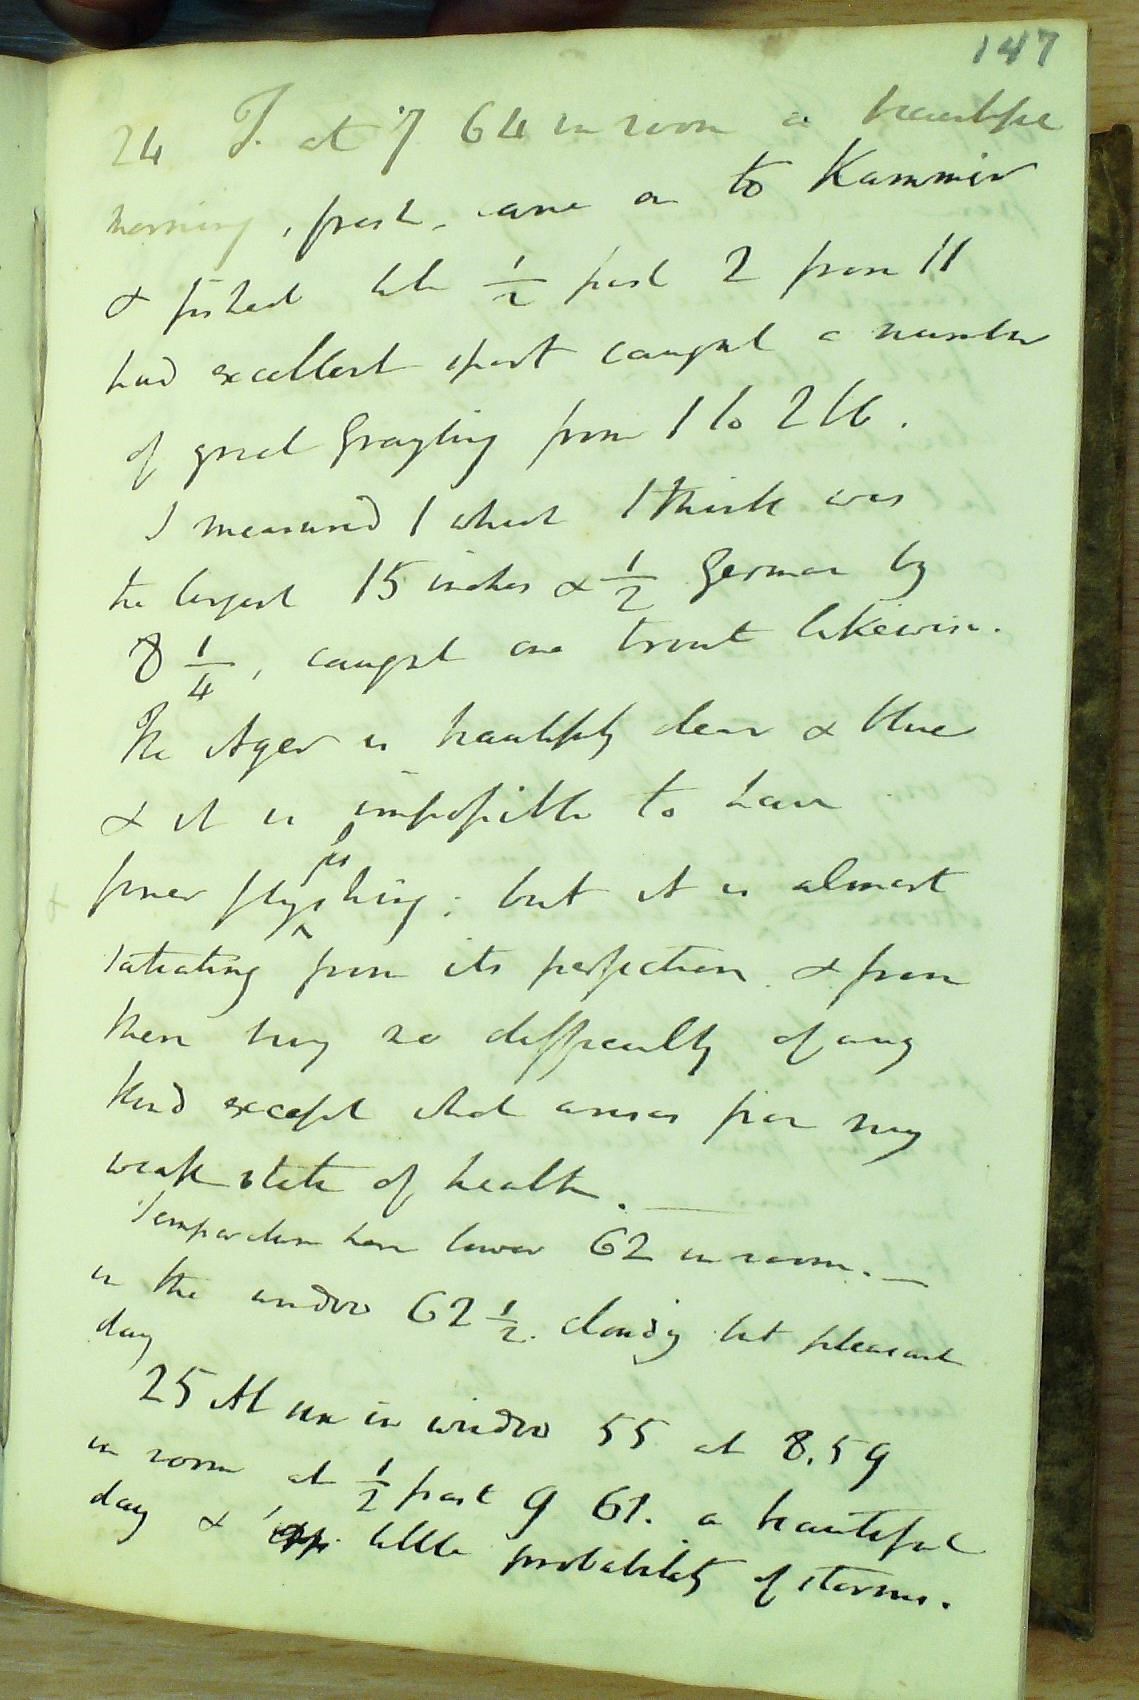 147
24 T. at 7 64 in room a beautiful
morning, fresh, came on to Kammer
& fished till 1/2 past 2 from 11
had excellent sport caught a number
of good Grayling from 1 to 2 lb.
I measured 1 which I think was
the largest 15 inches & 1/2 German by
8 1/4, caught one trout likewise.
The Ager is beautifully clear & blue
& it is impossible to have
finer fly fishing; but it is almost
satiating from its perfection & from
there being no difficulty of any
kind except what arises from my
weak state of health.
Temperature here lower 62 in room.
in the window 62 1/2. cloudy but pleasant
day
25 At in window 55 at 8.59
in room at 1/2 past 9 61. a beautiful
day & little probability of storms.